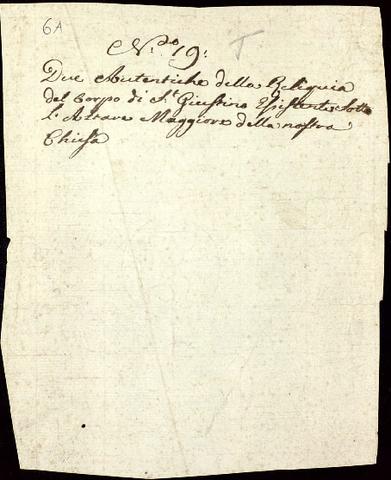 6A
N.ro 19:
T
Due Autentiche della Reliquia
del Corpo di S.t Giustino Esistente Sotto
L'Altare Maggiore della nostra
Chiesa